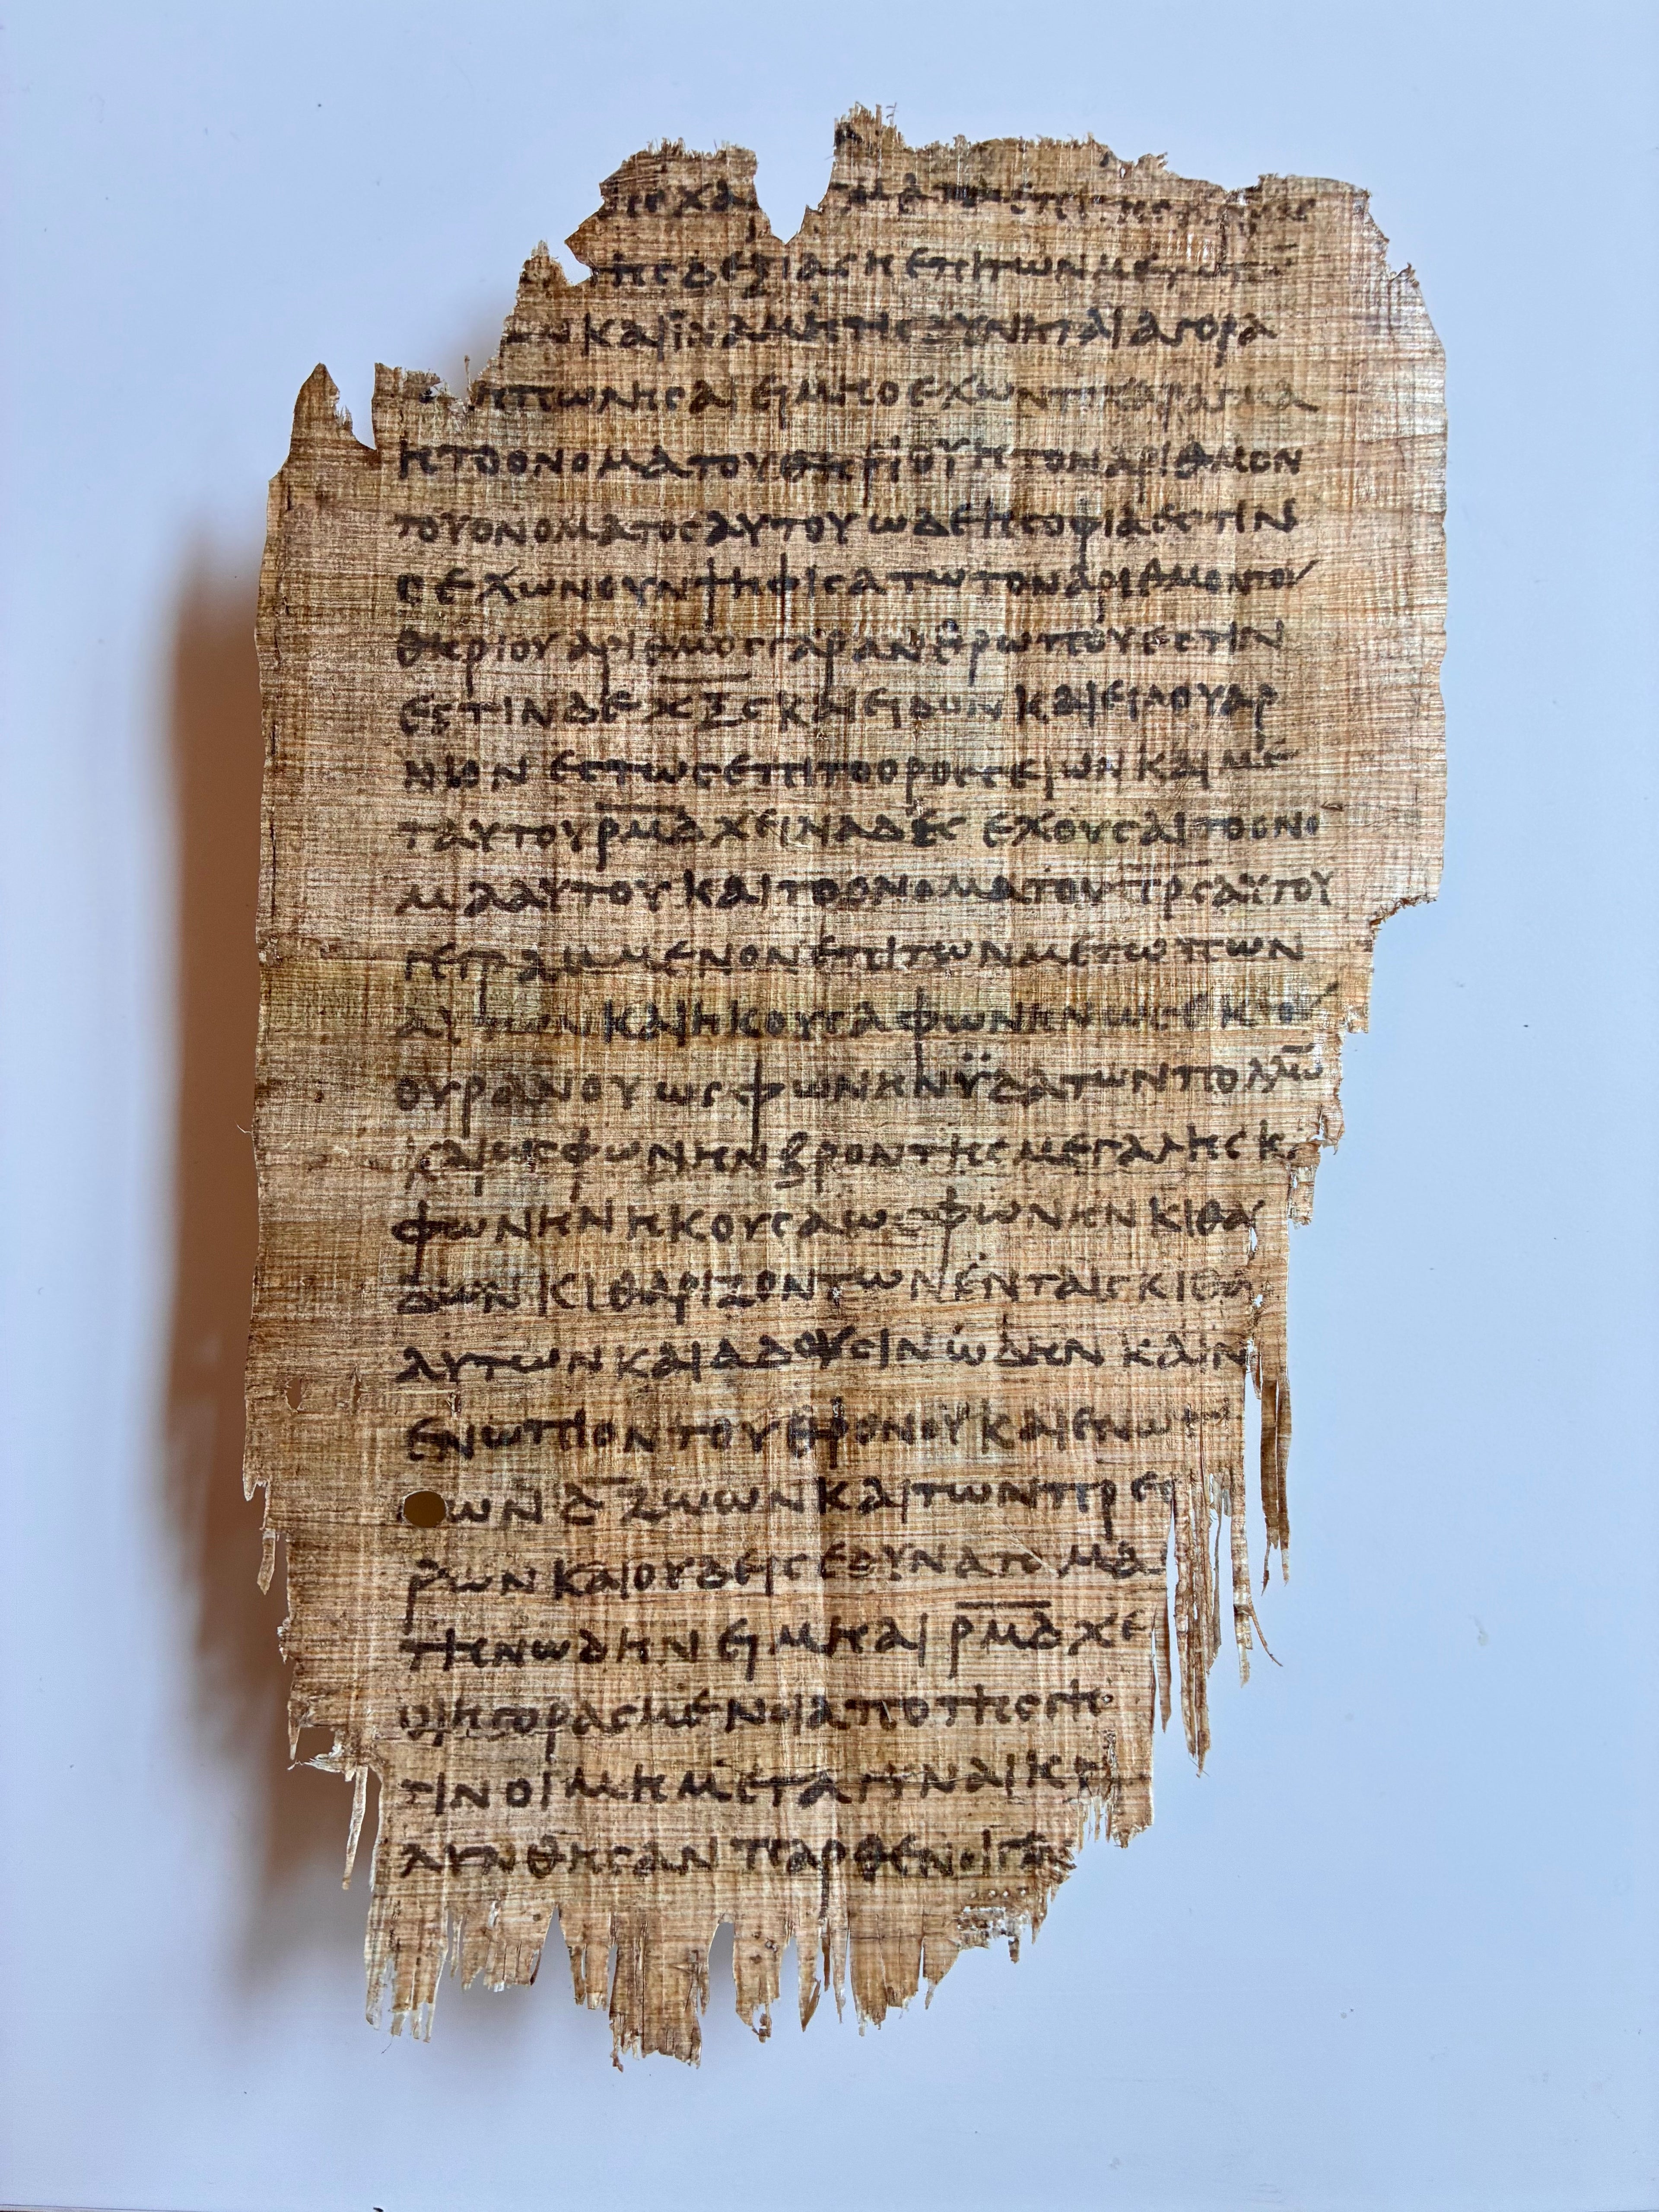 ΤΗϹΔΕΞΙΑϹΗΕΠΙΤΩΝΜΕΤΩΠΩ
ΩΝ ΚΑΙΪΝΑΜΗΤΙϹΔΥΝΗΤΑΙΑΓΟΡΑ
ΗΠΩΛΗϹΑΙ ΕΙΜΗΟΕΧΩΝΤΟΧΑΡΑΓΜΑ
ΗΤΟΟΝΟΜΑΤΟΥΘΗΡΙΟΥΗΤΟΝΑΡΙΘΜΟΝ
ΤΟΥΟΝΟΜΑΤΟϹΑΥΤΟΥ ΩΔΕΗϹΟΦΙΑΕϹΤΙΝ
ΟΕΧΩΝΟΥΝΨΗΦΙϹΑΤΩΤΟΝΑΡΙΘΜΟΝΤΟΥ
ΘΗΡΙΟΥΑΡΙΘΜΟϹΓΑΡΑΝΘΡΩΠΟΥΕϹΤΙΝ
ΕϹΤΙΝΔΕ Χ̅Ξ̅Ϛ̅ ΚΑΙΕΙΔΟΝ ΚΑΙΕΙΔΟΥΑΡ
ΝΙΟΝ ΕϹΤΩϹΕΠΙΤΟΟΡΟϹϹΙΩΝ ΚΑΙΜΕ
ΤΑΥΤΟΥΡ̅Μ̅Δ̅ΧΕΙΛΙΑΔΕϹ ΕΧΟΥϹΑΙΤΟΟΝΟ
ΜΑΑΥΤΟΥ ΚΑΙΤΟΟΝΟΜΑΤΟΥ Π̅Ρ̅Ϲ̅ΑΥΤΟΥ
ΓΕΓΡΑΜΜΕΝΟΝΕΠΙΤΩΝΜΕΤΩΠΩΝ
ΑΥΤΩΝΚΑΙΗΚΟΥϹΑΦΩΝΗΝΩϹΕΚΤΟΥ
ΟΥΡΑΝΟΥΩϹΦΩΝΗΝΫΔΑΤΩΝΠΟΛΛΩ̅
ΚΑΙΩϹΦΩΝΗΝΒΡΟΝΤΗϹΜΕΓΑΛΗϹΚ
ΦΩΝΗΝΗΚΟΥϹΑΩϹΦΩΝΗΝΚΙΘΑ
ΔΩΝ ΚΙΘΑΡΙΖΟΝΤΩΝΕΝΤΑΙϹΚΙΘΑ
ΑΥΤΩΝΚΑΙΑΔΟΥϹΙΝΩΔΗΝ ΚΑΙΝ
ΕΝΩΠΙΟΝΤΟΥΘΡΟΝΟΥΚΑΙΕΝΩ
ΩΝ Δ̅ ΖΩΩΝΚΑΙΤΩΝΠΡΕϹ
ΡΩΝ ΚΑΙΟΥΔΕΙϹΕΔΥΝΑΤΟ ΜΑ
ΤΗΝΩΔΗΝ ΕΙΜΗΑΙ Ρ̅Μ̅Δ̅ ΧΕ
ΟΙΗΓΟΡΑϹΜΕΝΟΙΑΠΟΤΗϹΓΗ
ΤΙΝΟΙΜΗΜΕΤΑΓΥΝΑΙΚ
ΛΥΝΘΗϹΑΝ ΠΑΡΘΕΝΟΙΓΑΡ